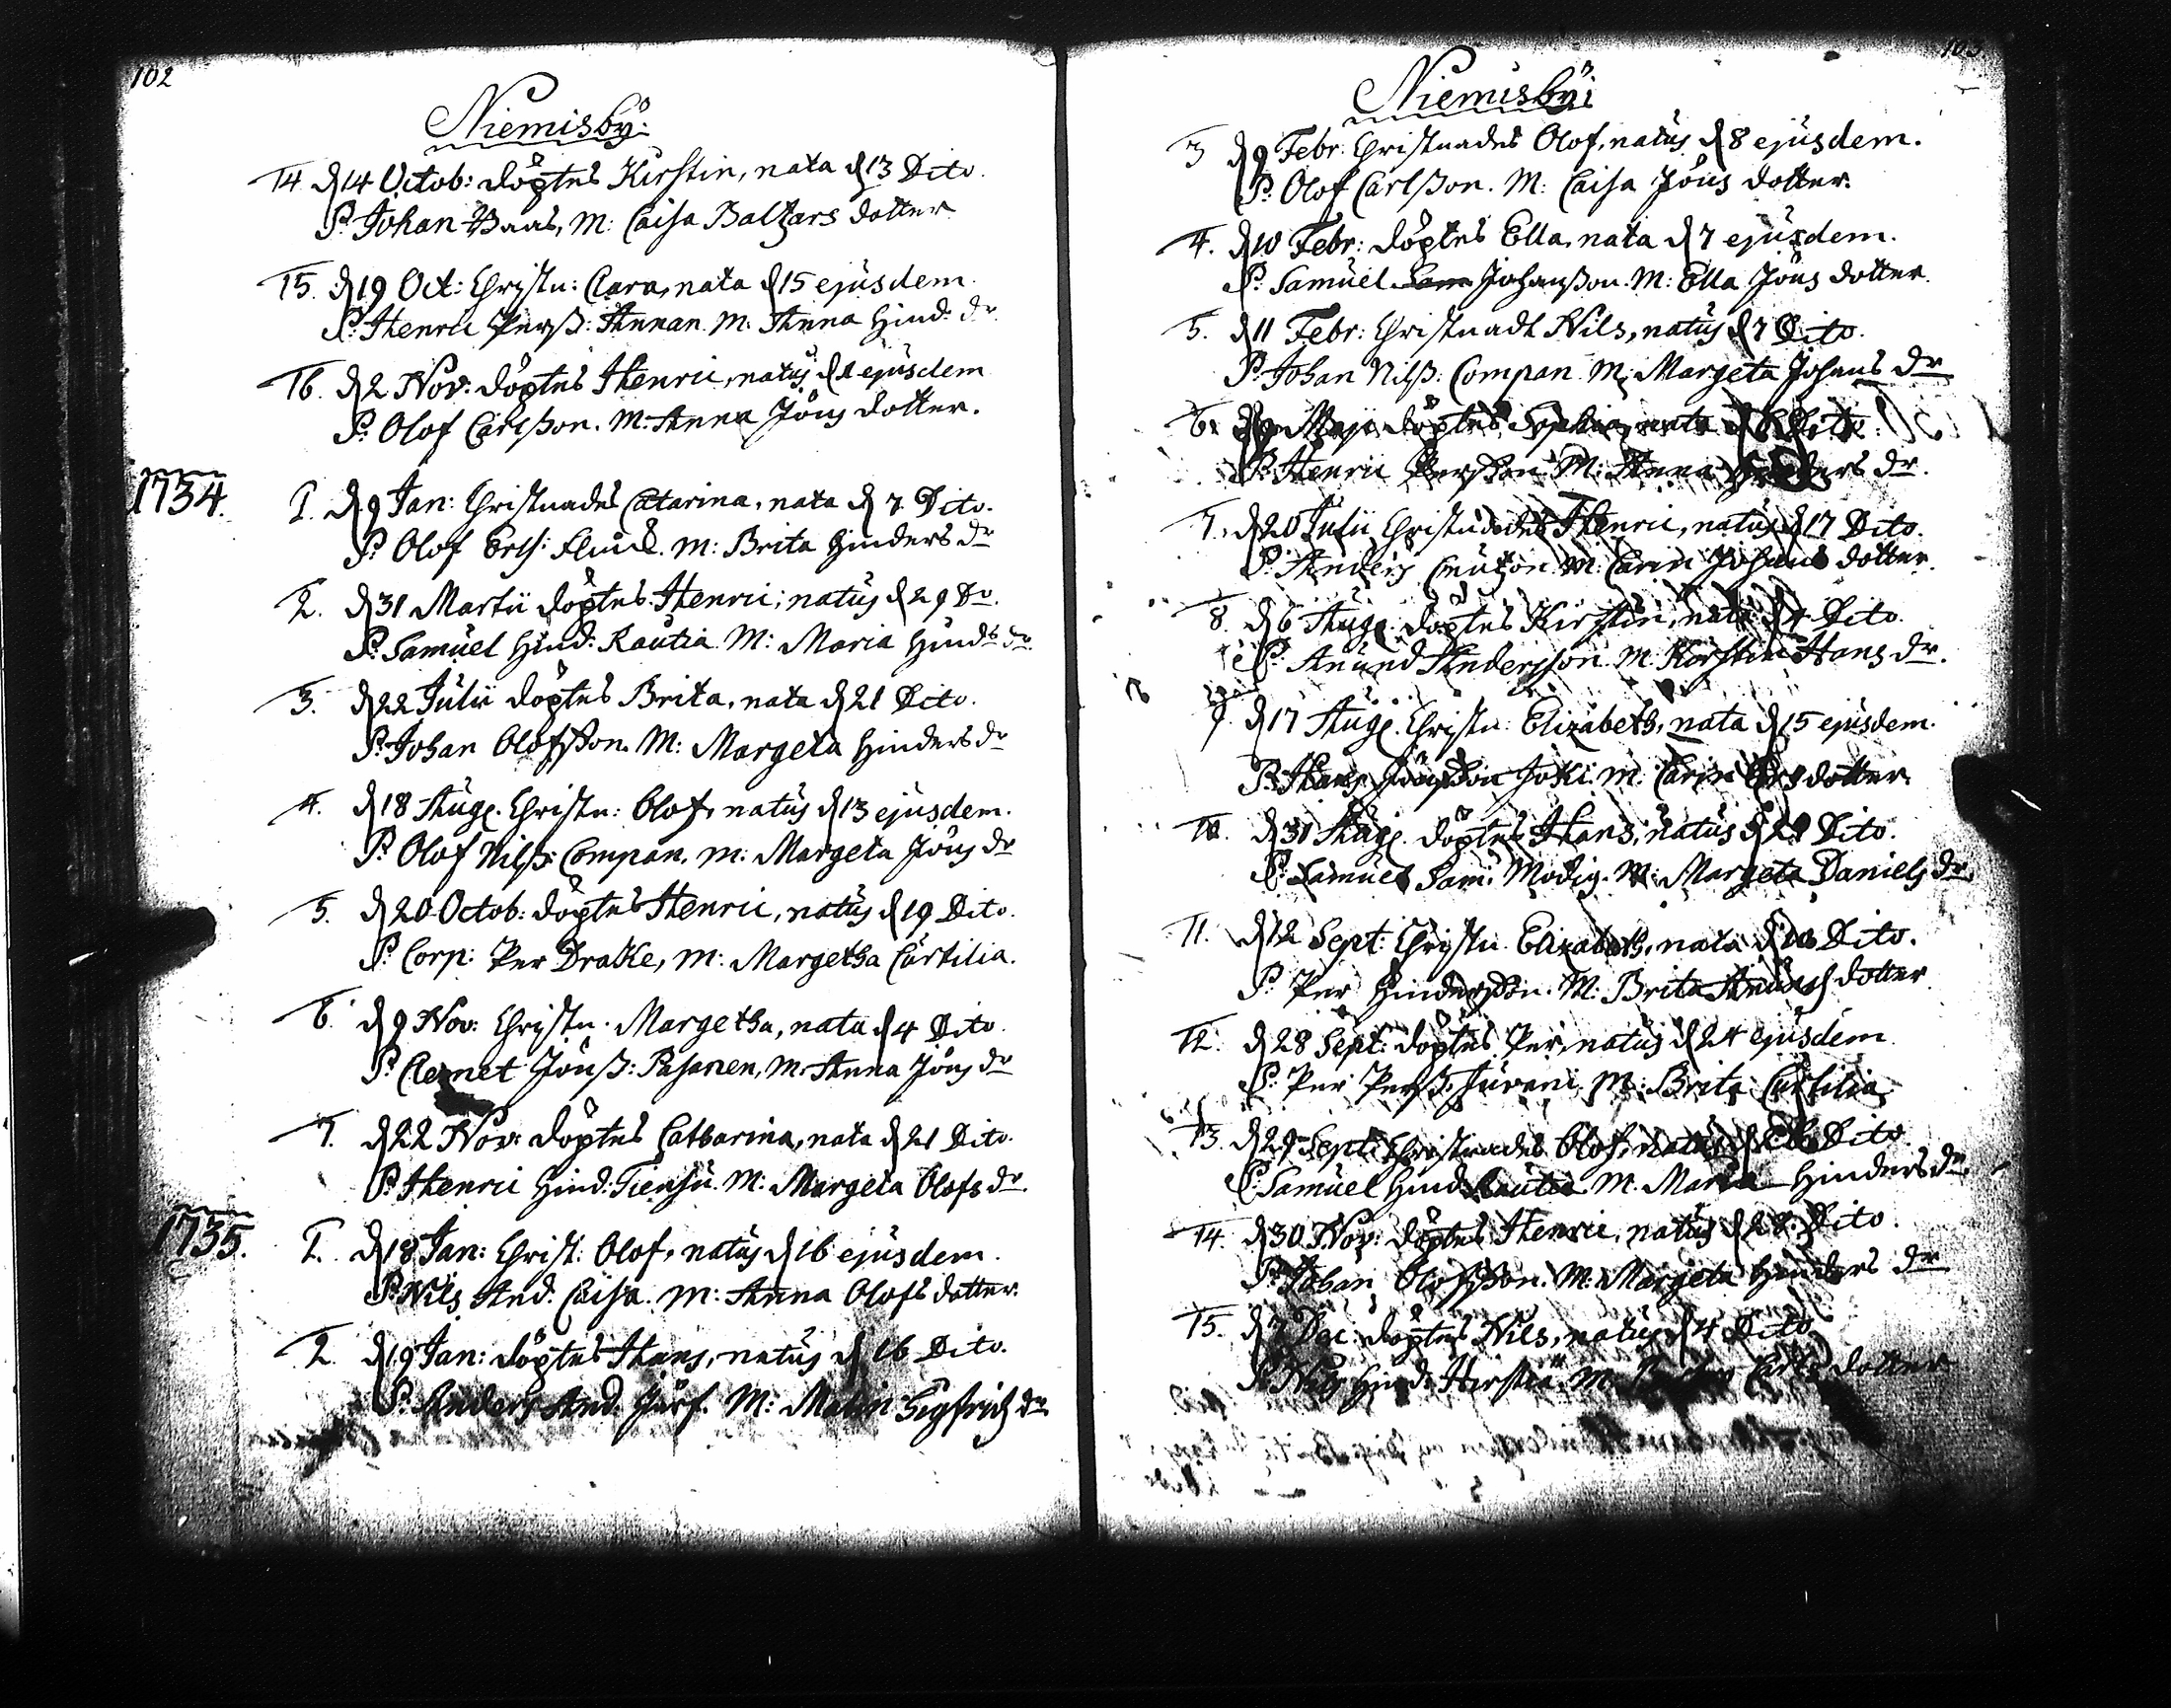 102
Niemisby:
14. d 14 Octob: döptes Kirstin, nata d 13 Dito.
P: Johan Baas, M: Caisa Baltzars dotter
15. d 19 Oct: Christn: Clara, nata d 15 ejusdem.
P: Henric Perss: Annan. M: Anna Hind: dr
16. d 2 Nov: döptes Henric, natus d 1 ejusdem
P: Olof Carlsson. M: Anna Jöns dotter.
1734.
1. d 9 Jan: Christnades Catarina, nata d 7 Dito.
P: Olof Erss: M: Brita Hinders dr
2. d 31 Martii döptes Henric, natus d 29 Do.
P: Samuel Hind: Rautia M: Maria Hinds dr
3. d 22 Julii döptes Brita, nata d 21 Dito.
P: Johan Olofsson. M: Margeta Hinders dr
4. d 18 Aug. Christn: Olof, natus d 13 ejusdem.
P: Olof Nilss: Compan, M: Margeta Jöns dr
5. d 20 Octob: döptes Henric, natus d 19 Dito.
P: Corp: Per Drake, M: Margetha Curtilia.
6. d 9 Nov: Christn. Margetha, nata d 4 Dito.
P: Clemet Jönss: Pasanen, M: Anna Jöns dr
7. d 22 Nov: döptes Catharina, nata d 21 Dito.
P: Henric Hind: Tiensu. M: Margeta Olofs dr.
1735.
1. d 18 Jan: Christ: Olof, natus d 16 ejusdem.
P: Nils And: Caisa. M: Anna Olofs dotter.
2. d 19 Jan: döptes Hans, natus d 16 Dito.
P: Anders And: Järf. M: Malin Sigfrids dr
103
Niemisby:
3 d 9 Febr: Christnades Olof, natus d 8 ejusdem.
P: Olof Carlsson. M: Caisa Jöns dotter.
4. d 10 Febr: döptes Ella, nata d 7 ejusdem.
P: Samuel Sam Johansson. M: Ella Jöns dotter.
5. d 11 Febr: Christnadt Nils, natus d 7 Dito.
P: Johan Nilss: Compan. M: Margeta Johans dr
6. Maji döptes Sophia, nata d 8 Dito.
P: Henric Persson M: Anna Hinders dr.
7. d 20 Julii Christnades Henric, natus d 17 Dito.
P: Anders M: Carin Johans dotter.
8. d 6 Aug. döptes Kirstin, nata d 4 Dito.
P: Anund Andersson. M: Kirstin Hans dr.
9. d 17 Aug. Christn: Elizabeth, nata d 15 ejusdem.
P: Hans Jönsson Joki. M: Carin Ers dotter.
10. d 31 Aug. döptes Hans, natus d 29 Dito.
P: Samuel Sam: Modig. M: Margeta Daniels dr.
11. d 12 Sept: Christn Elizabeth, nata d 10 Dito.
P: Per Hindersson. M: Brita Anunds dotter
12. d 28 Sept: döptes Per, natus d 24 ejusdem
P: Per Perss: Juvani M: Brita Curtilia.
13. d 29 Sept: Christnades Olof, natus d Dito.
P: Samuel Hind Rautia M. Maria Hinders dr.
14. d 30 Nov: döptes Henric, natus d 28 Dito.
P: Johan Olofsson. M: Margeta Hinders dr.
15. d 7 Dec: döptes Nils, natus d 4 Dito.
P: Nils Hind: M: dotter